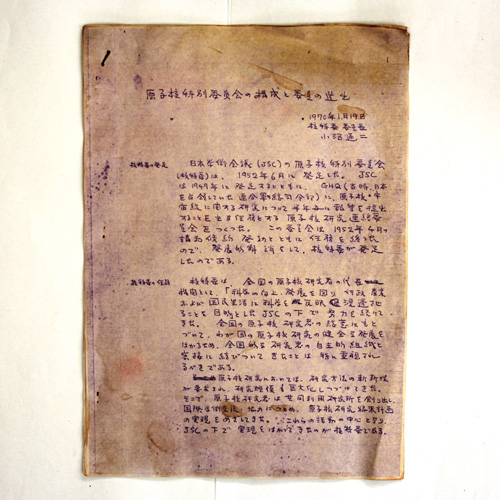 原子核特別委員会の構成と委員の選出
1970年1月19日
核特委 委員長
小沼通二
核特委の発足 日本学術会議(JSC)の原子核特別委員会
(核特委)は、1952年6月に発足した。JSC
は1949年に発足するとともに、GHQ(当時、日本
を占領していた連合軍総司令部)に、原子核・宇
宙線に関する研究について半年毎に報告を提出
することを主な任務とする 原子核研究連絡委
員会をつくった。この委員会は1952年4月の
講和条約発効とともに任務を終った
ので、発展的解消をして、核特委が発足
したのである。
核特委の任務 核特委は、全国の原子核研究者の代表
機関として、「科学の向上発展を図り、行政、産業
および国民生活に科学を反映浸透させ
ることを目的としたJSCの下で努力を続けて
きた。全国の原子核研究者の総意にもと
づいて、わが国の原子核研究の健全な発展を
はかるため、全国的な研究者の自主的組織と
密接に結びついてきたことは特に重視され
るべきである。
原子核研究においては、研究方法の斬新性
が要求され、研究規模も巨大化しつづけてきた。
そこで、原子核研究者は共同利用研究所を創り出し、
国際学術交流 原子核研究将来計画
の実現をめざしてきた。これらの活動の中心となり、
JSCの下で実現をはかってきたのが核特委である。